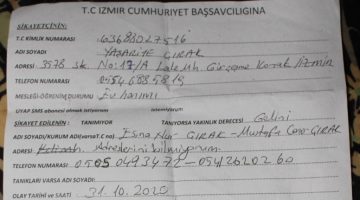 T.C İZMİR CUMHURİYET BAŞSAVCILIĞINA
ŞİKAYETÇİNİN:
T.C KİMLİK NUMARASI 63688027516
ADI SOYADI ÇIRAK
ADRESİ 3578 Sk. No:17/A Mah İzmir
TELEFON NUMARASI
MESLEĞİ ÖĞRENİM DURUMU Ev hanımı
UYAP SMS abonesi olmak istiyorum istemiyorum
ŞİKAYET EDİLENİN: TANIMIYOR TANIYORSA YAKINLIK DERECESİ Gelini
ADI SOYADI/KURUM ADI(varsaT.C no) Esma Nur ÇIRAK - Mustafa Can ÇIRAK
ADRESİ Adreslerini bilmiyorum
TELEFON NUMARASI
TANIKLARI VARSA ADI SOYADI:
OLAY TARİHİ ve SAATİ 31.10.2020